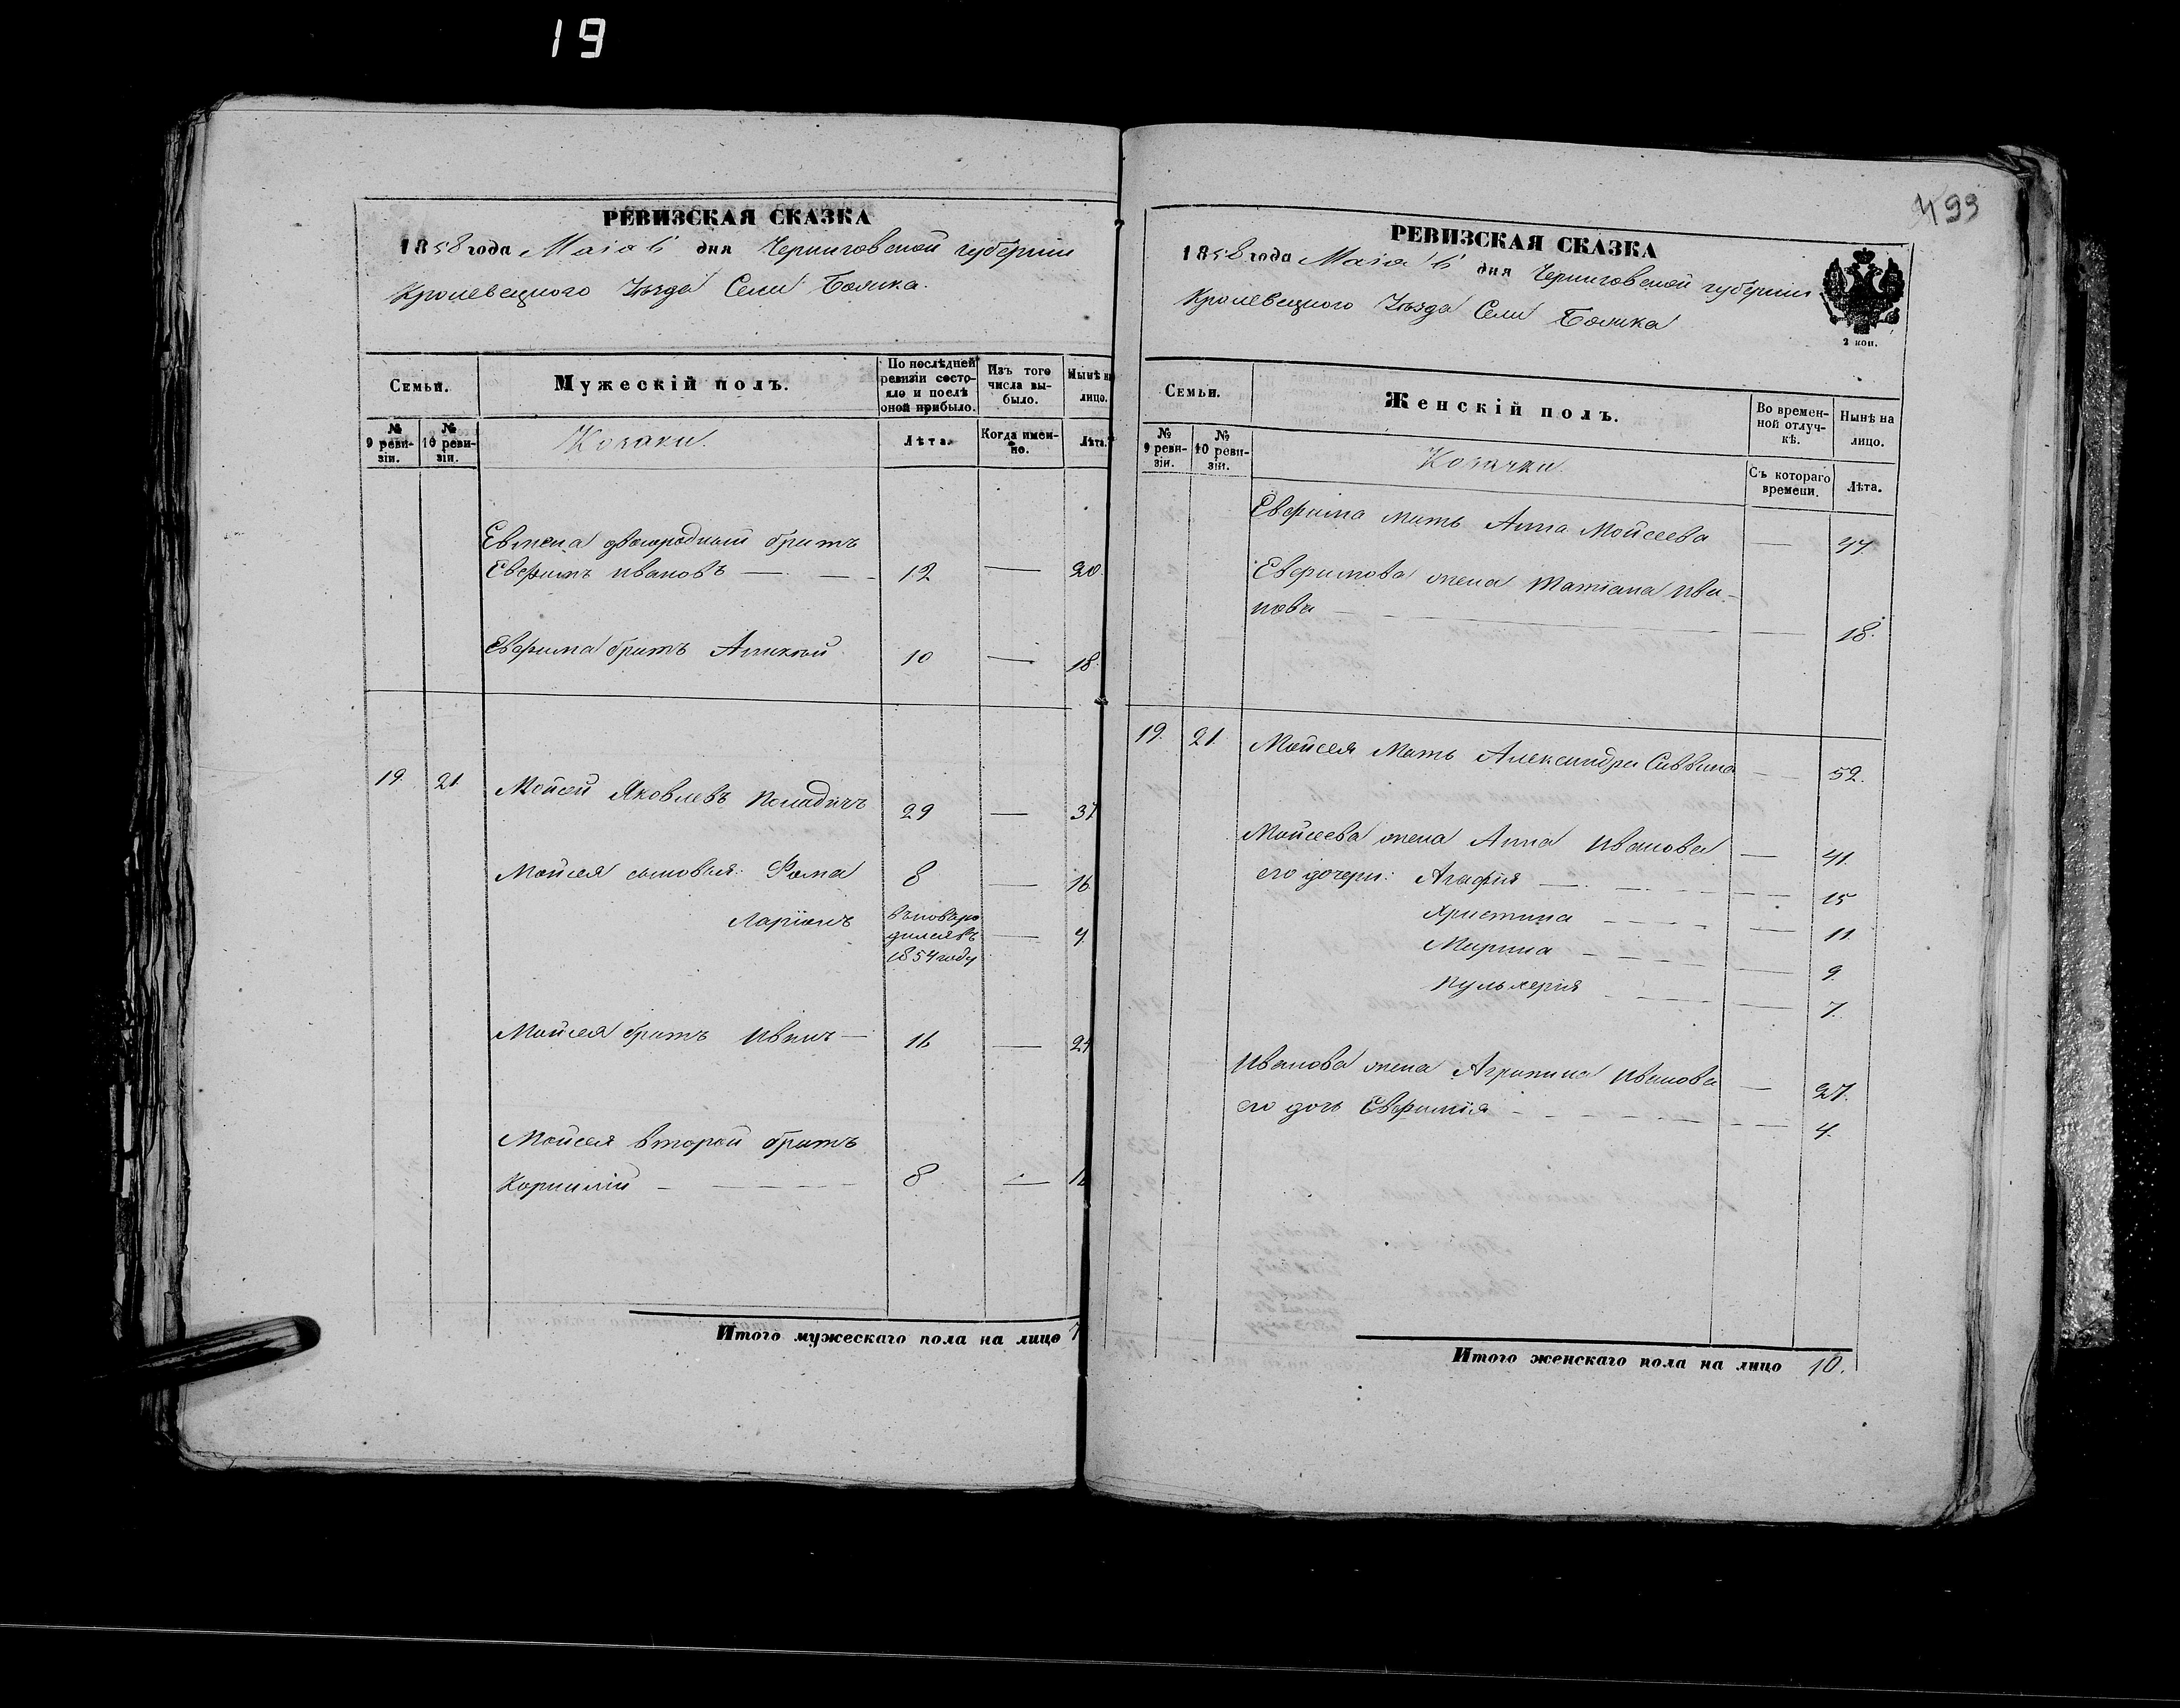 19
РЕВИЗСКАЯ СКАЗКА
1858 года Маія 6 дня Черниговской губерніи
Кролевецкого Уѣзда Села
Семьи.
Мужескій полъ.
По послѣдней ревизіи состояло и послѣ оной прибыло.
Изъ того числа выбыло.
Нынѣ на лицо.
№ 9 ревизіи.
№ 10 ревизіи.
Козаки.
Лѣта.
Когда именно.
Лѣта.
двоюродный братъ
Евфимъ Ивановъ — 12 — 20.
Евфима братъ 10 — 18.
19. 21. Мойсей Яковлевъ 29 — 37
Мойсея сыновья: Фома 8 — 16
Ларіонъ
вновьро
дился въ — 4.
1854 году
Мойсея братъ Иванъ — 16 — 24
Мойсея второй братъ
Корнилій — 8 — 16
Итого мужескаго пола на лицо 7
499
РЕВИЗСКАЯ СКАЗКА
1858 года Маія 6 дня Черниговской губерніи
Кролевецкого Уѣзда Села
2 коп.
Семьи.
Женскій полъ.
Во временной отлучкѣ.
Нынѣ на лицо.
№ 9 ревизіи.
№ 10 ревизіи.
Козачки.
Съ котораго времени.
Лѣта.
Евфима мать Анна Мойсеева — 47.
Евфимова жена Татіана Ива-
нова — 18.
19. 21. Мойсея Мать Александра Саввина — 52.
Мойсеева жена Анна Иванова — 41.
его дочери: Агафія — 15
Христина — 11.
Марина — 9.
Пульхерія — 7.
Иванова жена Агрипина Иванова — 27.
его дочь Евфимія — 4.
Итого женскаго пола на лицо 10.